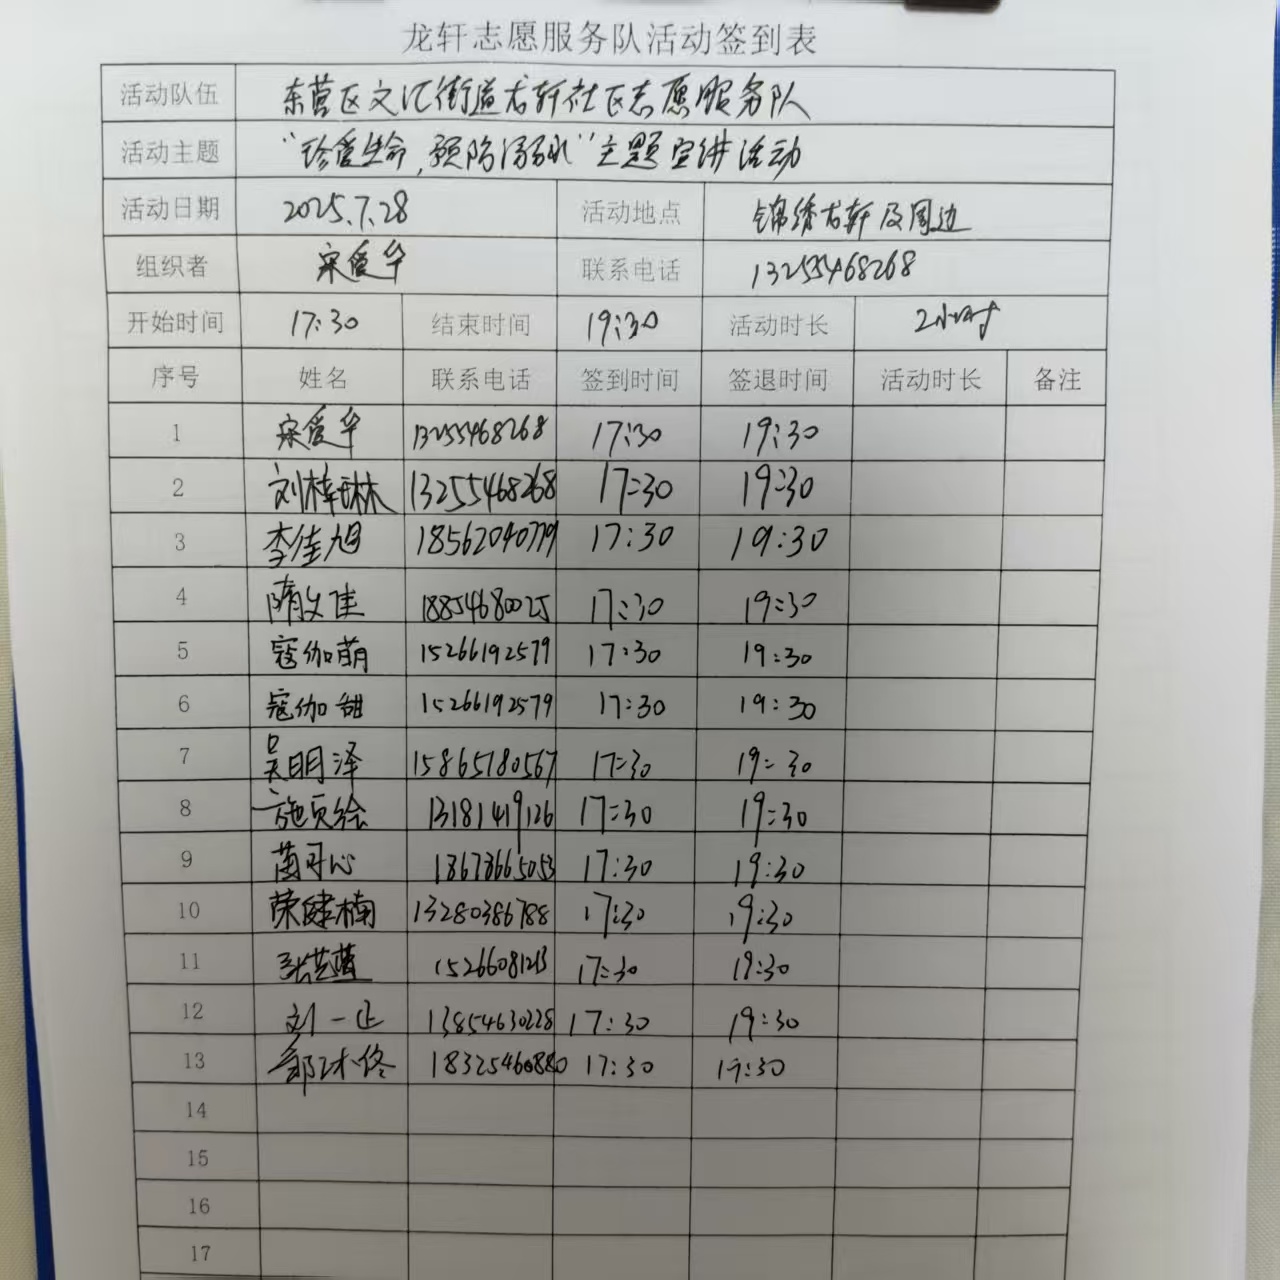 龙轩志愿服务队活动签到表
活动队伍 东营区文汇街道龙轩社区志愿服务队
活动主题 “珍爱生命,预防溺水”主题宣讲活动
活动日期 2025.7.28 活动地点 锦绣龙轩及周边
组织者 宋爱华 联系电话 13255468268
开始时间 17:30 结束时间 19:30 活动时长 2小时
序号 姓名 联系电话 签到时间 签退时间 活动时长 备注
1 宋爱华 13255468268 17:30 19:30
2 刘梓琳 13255468268 17:30 19:30
3 李佳旭 18562040779 17:30 19:30
4 隋文佳 18854680025 17:30 19:30
5 寇伽萌 15266192579 17:30 19:30
6 寇伽甜 15266192579 17:30 19:30
7 吴明泽 15865780567 17:30 19:30
8 13181419126 17:30 19:30
9 18678665053 17:30 19:30
10 荣肄楠 13280386788 17:30 19:30
11 15266081213 17:30 19:30
12 刘一 13854630228 17:30 19:30
13 17:30 19:30
14
15
16
17